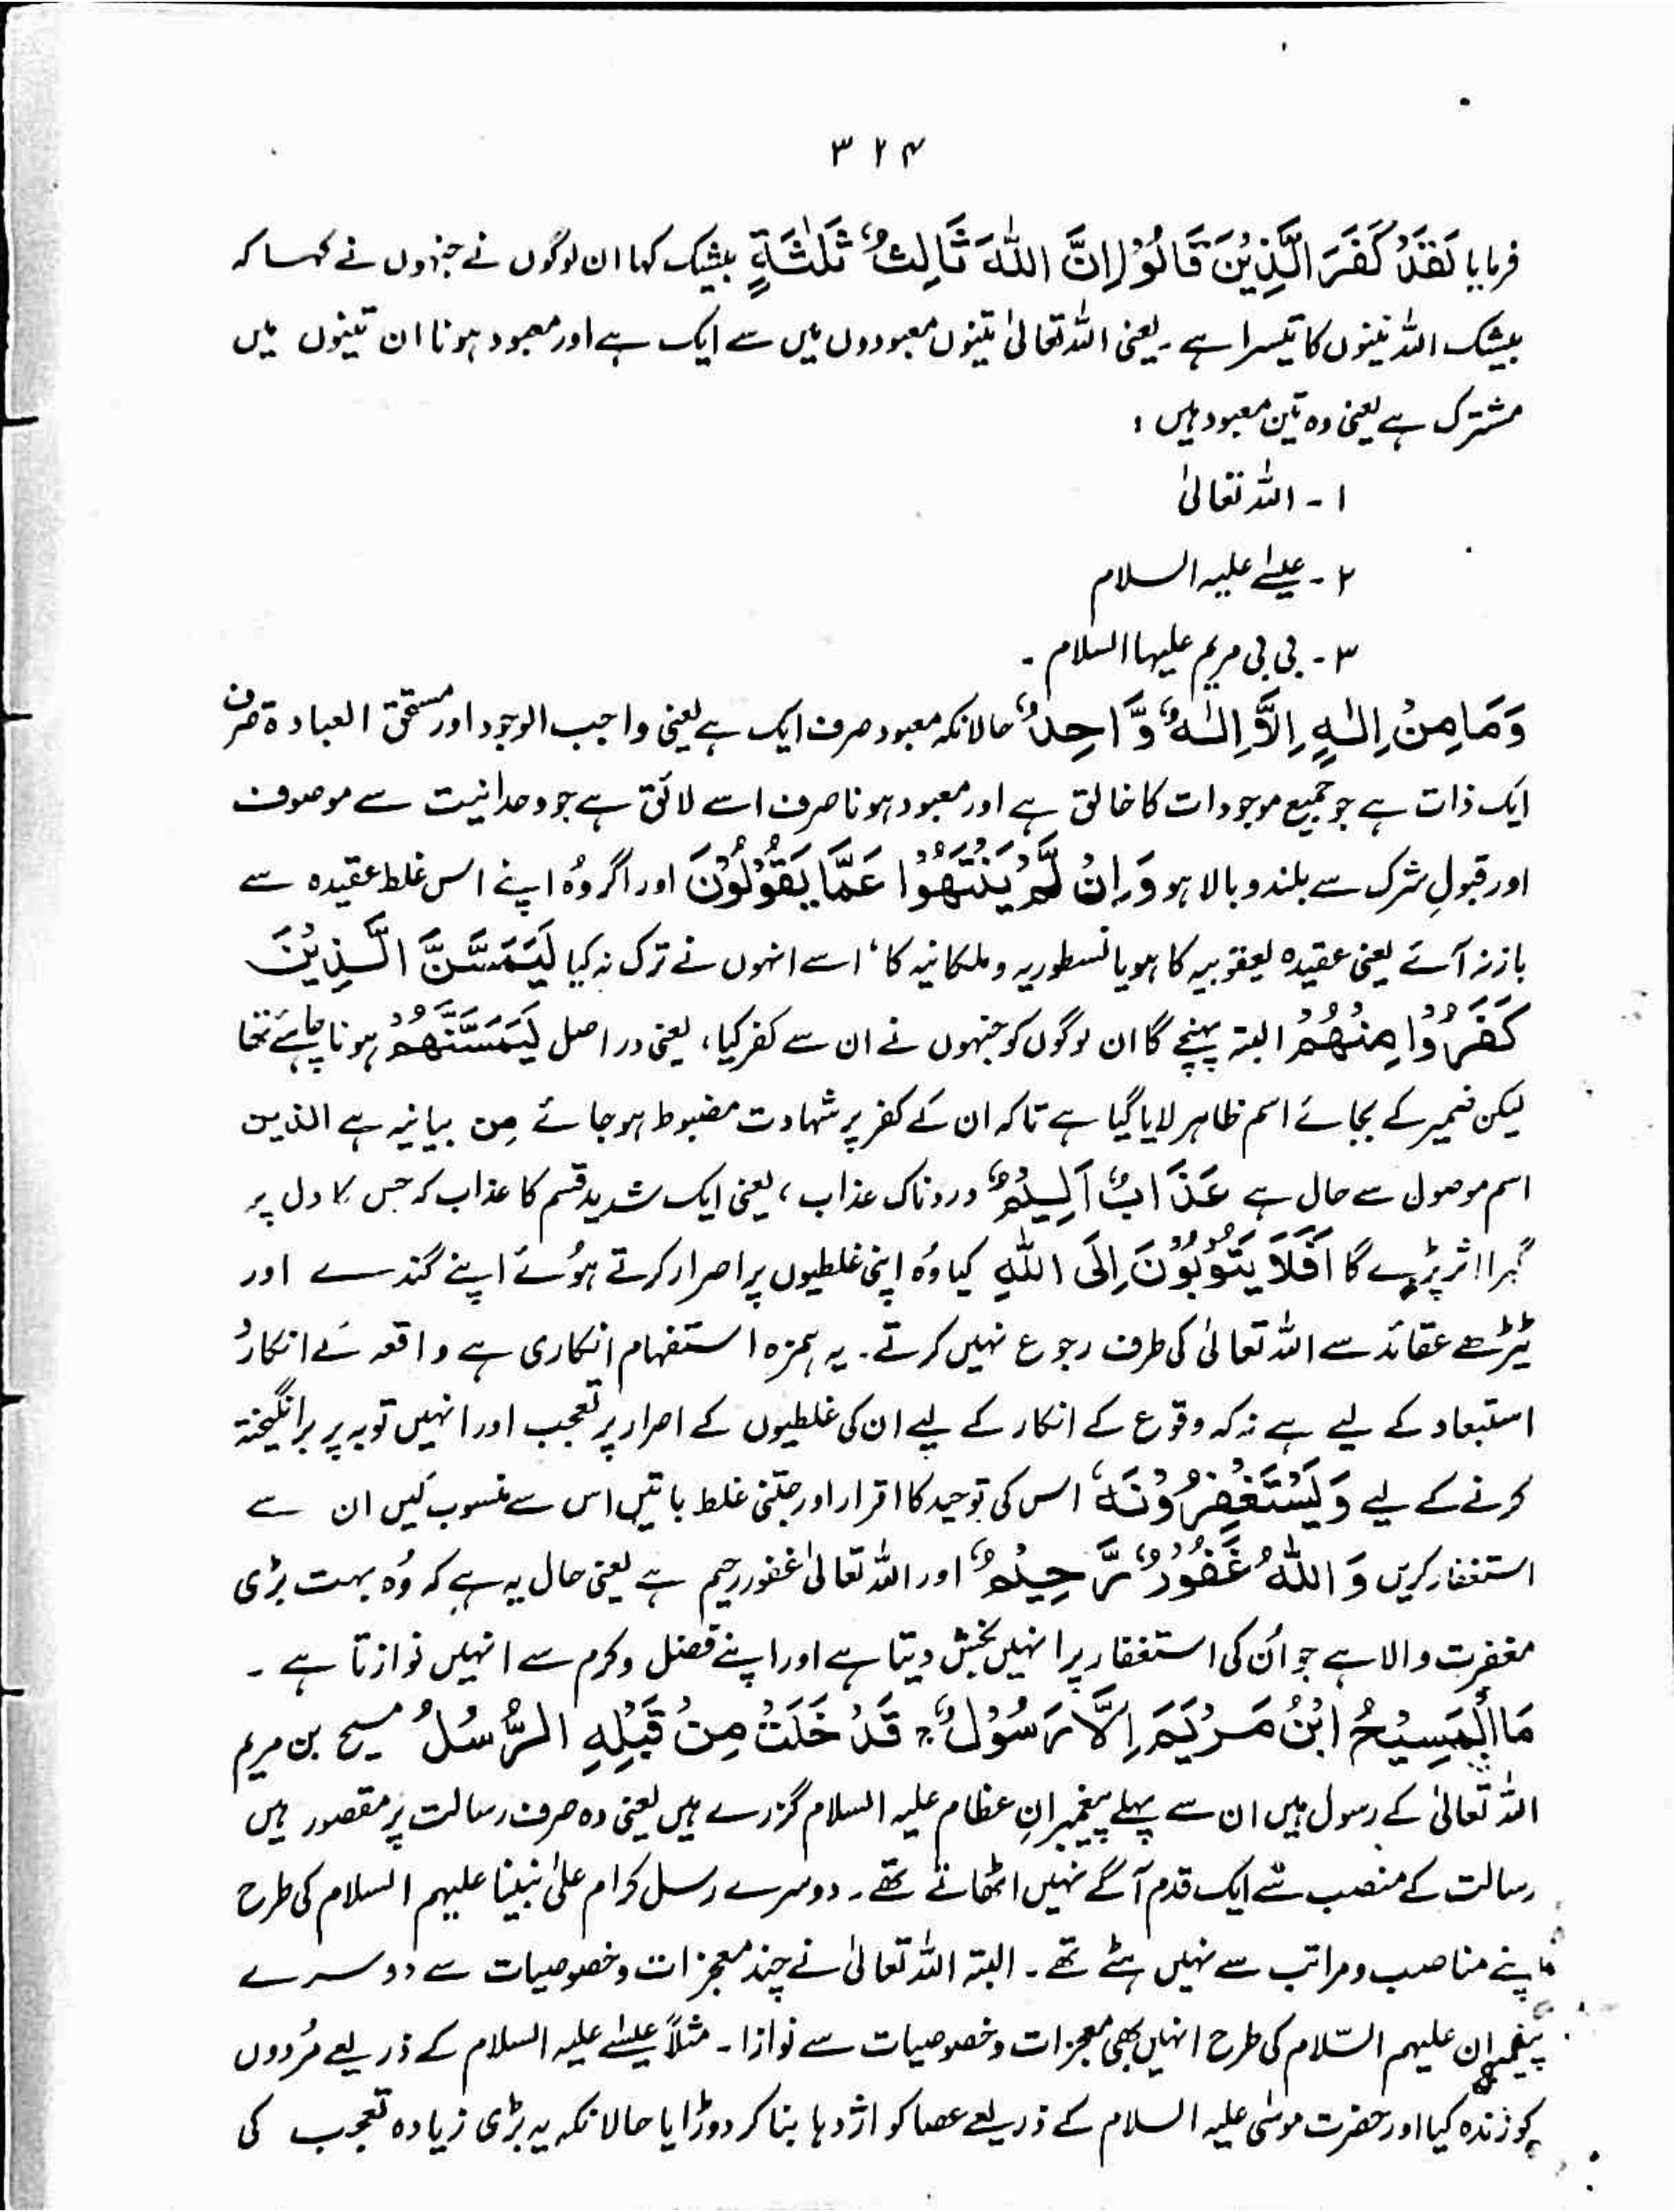 ۳۲۴
فرمایا لَقَدْ كَفَرَ الَّذِيْنَ قَالُوْٓا اِنَّ اللّٰهَ ثَالِثُ ثَلٰثَةٍ بیشک کہا ان لوگوں نے جنہوں نے کہا کہ
بیشک اللہ تینوں کا تیسرا ہے ۔ یعنی اللہ تعالیٰ تینوں معبودوں میں سے ایک ہے اور معبود ہونا ان تینوں میں
مشترک ہے یعنی وہ تین معبود ہیں :
۱ - اللہ تعالیٰ
۲ - عیسٰے علیہ السلام
۳ - بی بی مریم علیہا السلام ۔
وَمَا مِنْ اِلٰهٍ اِلَّآ اِلٰهٌ وَّاحِدٌ حالانکہ معبود صرف ایک ہے یعنی واجب الوجود اور مستحق العبادۃ صرف
ایک ذات ہے جو جمیع موجودات کا خالق ہے اور معبود ہونا صرف اسے لائق ہے جو وحدانیت سے موصوف
اور قبولِ شرک سے بلند و بالا ہو وَاِنْ لَّمْ يَنْتَهُوْا عَمَّا يَقُوْلُوْنَ اور اگر وُہ اپنے اس غلط عقیدہ سے
باز نہ آئے یعنی عقیدہ یعقوبیہ کا ہو یا نسطوریہ و ملکانیہ کا، اسے انہوں نے ترک نہ کیا لَيَمَسَّنَّ الَّذِيْنَ
كَفَرُوْا مِنْهُمْ البتہ پہنچے گا ان لوگوں کو جنہوں نے ان سے کفر کیا، یعنی در اصل لَيَمَسَّنَّهُمْ ہونا چاہئے تھا
لیکن ضمیر کے بجائے اسم ظاہر لایا گیا ہے تاکہ ان کے کفر پر شہادت مضبوط ہو جائے مِن بیانیہ ہے الذین
اسم موصول سے حال ہے عَذَابٌ اَلِيْمٌ دردناک عذاب، یعنی ایک شدید قسم کا عذاب کہ جس کا دل پر
گہرا اثر پڑے گا اَفَلَا يَتُوْبُوْنَ اِلَى اللّٰهِ کیا وُہ اپنی غلطیوں پر اصرار کرتے ہُوئے اپنے گندے اور
ٹیڑھے عقائد سے اللہ تعالیٰ کی طرف رجوع نہیں کرتے ۔ یہ ہمزہ استفہام انکاری ہے واقعہ کے انکار و
استبعاد کے لیے ہے نہ کہ وقوع کے انکار کے لیے ان کی غلطیوں کے اصرار پر تعجب اور انہیں توبہ پر برانگیختہ
کرنے کے لیے وَيَسْتَغْفِرُوْنَهٗ اس کی توحید کا اقرار اور جتنی غلط باتیں اس سے منسوب کیں ان سے
استغفار کریں وَاللّٰهُ غَفُوْرٌ رَّحِيْمٌ اور اللہ تعالیٰ غفور رحیم ہے یعنی حال یہ ہے کہ وُہ بہت بڑی
مغفرت والا ہے جو اُن کی استغفار پر انہیں بخش دیتا ہے اور اپنے فضل و کرم سے انہیں نوازتا ہے ۔
مَا الْمَسِيْحُ ابْنُ مَرْيَمَ اِلَّا رَسُوْلٌ ۚ قَدْ خَلَتْ مِنْ قَبْلِهِ الرُّسُلُ مسیح بن مریم
اللہ تعالیٰ کے رسول ہیں ان سے پہلے پیغمبرانِ عظام علیہ السلام گزرے ہیں یعنی وہ صرف رسالت پر مقصور ہیں
رسالت کے منصب سے ایک قدم آگے نہیں اٹھاتے تھے ۔ دوسرے رسل کرام علیٰ نبینا علیہم السلام کی طرح
اپنے مناصب و مراتب سے نہیں ہٹے تھے ۔ البتہ اللہ تعالیٰ نے چند معجزات و خصوصیات سے دوسرے
پیغمبران علیہم السّلام کی طرح انہیں بھی معجزات و خصوصیات سے نوازا ۔ مثلاً عیسٰے علیہ السلام کے ذریعے مُردوں
کو زندہ کیا اور حضرت موسٰی علیہ السلام کے ذریعے عصا کو اژدہا بنا کر دوڑایا حالانکہ یہ بڑی زیادہ تعجب کی